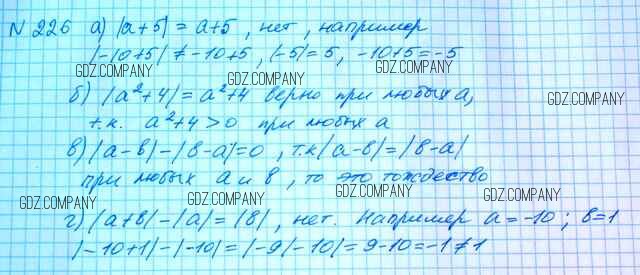 N 226 а) |a+5| = a+5, нет, например
|-10+5| ≠ -10+5, |-5|=5, -10+5=-5
GDZ.COMPANY GDZ.COMPANY GDZ.COMPANY
б) |a²+4| = a²+4 верно при любых a,
GDZ.COMPANY
т.к. a²+4>0 при любых a
GDZ.COMPANY GDZ.COMPANY
в) |a-b|-|b-a|=0, т.к |a-b|=|b-a|
при любых a и b, то это тождество
GDZ.COMPANY GDZ.COMPANY GDZ.COMPANY
г) |a+b|-|a|=|8|, нет. Например a=-10; b=1
|-10+1|-|-10|=|-9|-10|=9-10=-1≠1
GDZ.COMPANY GDZ.COMPANY